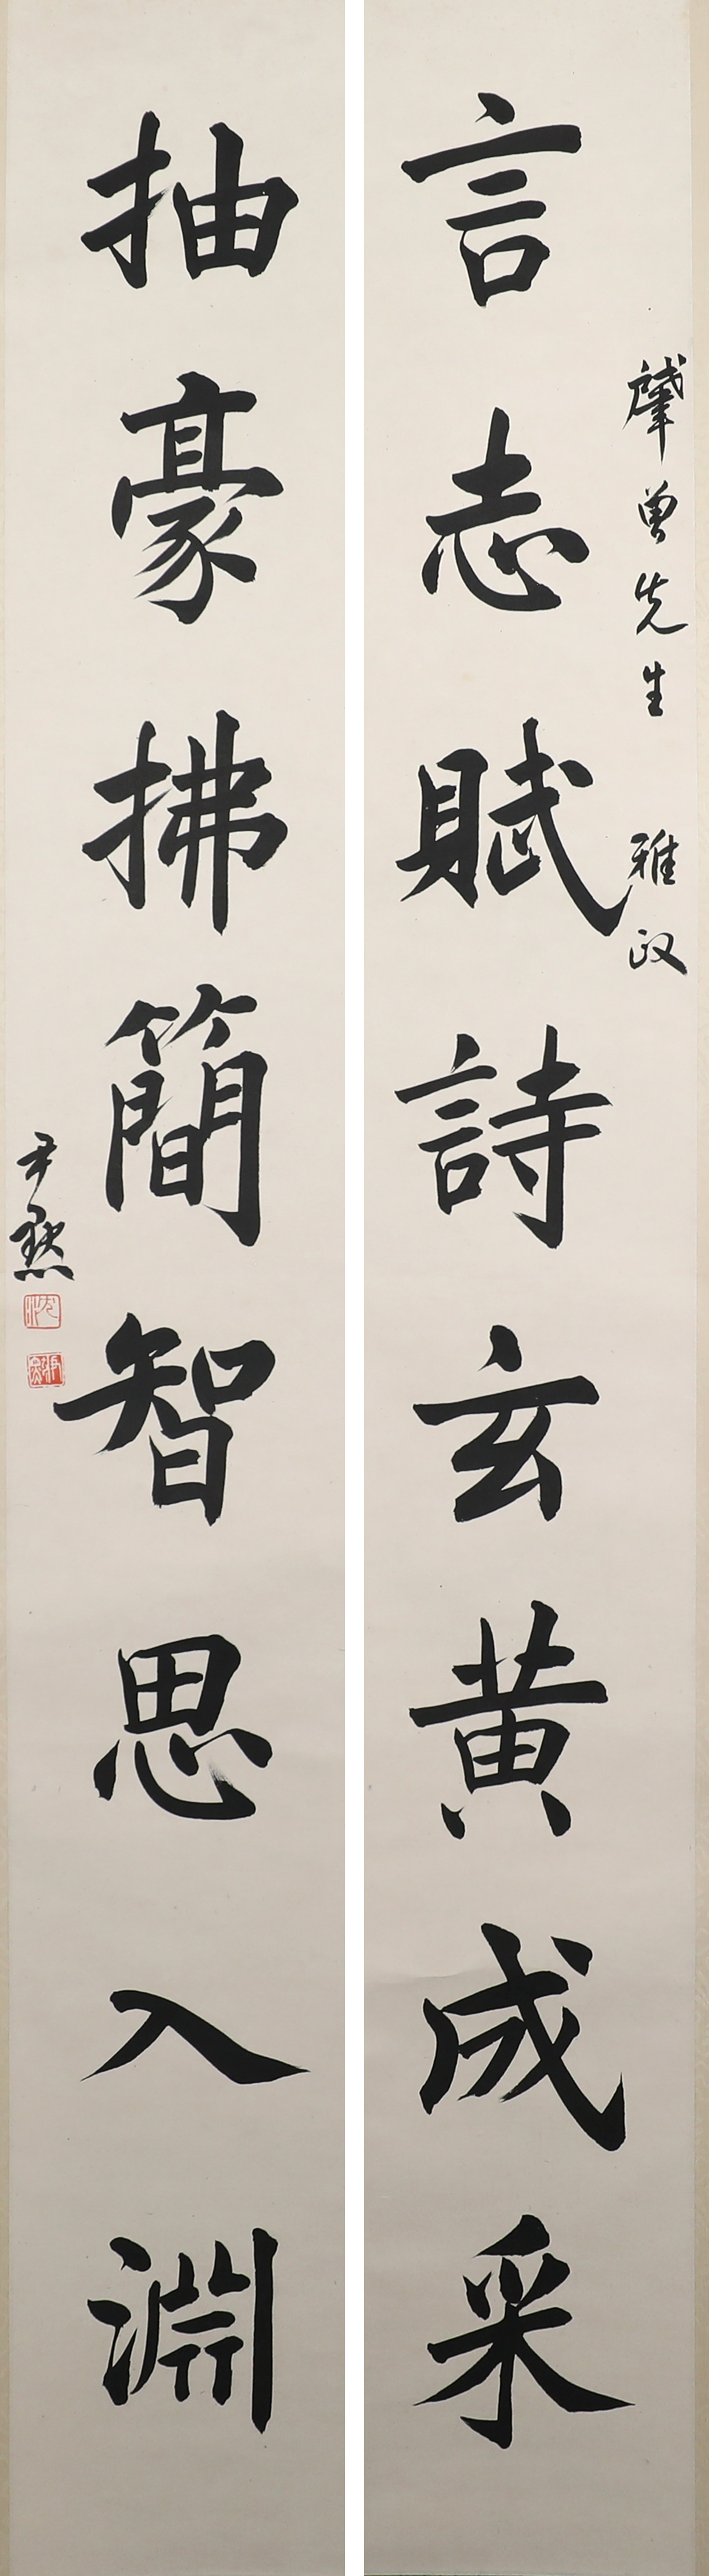 肇曾先生 雅政
言志賦詩玄黄成采
抽豪拂簡智思入淵
尹默